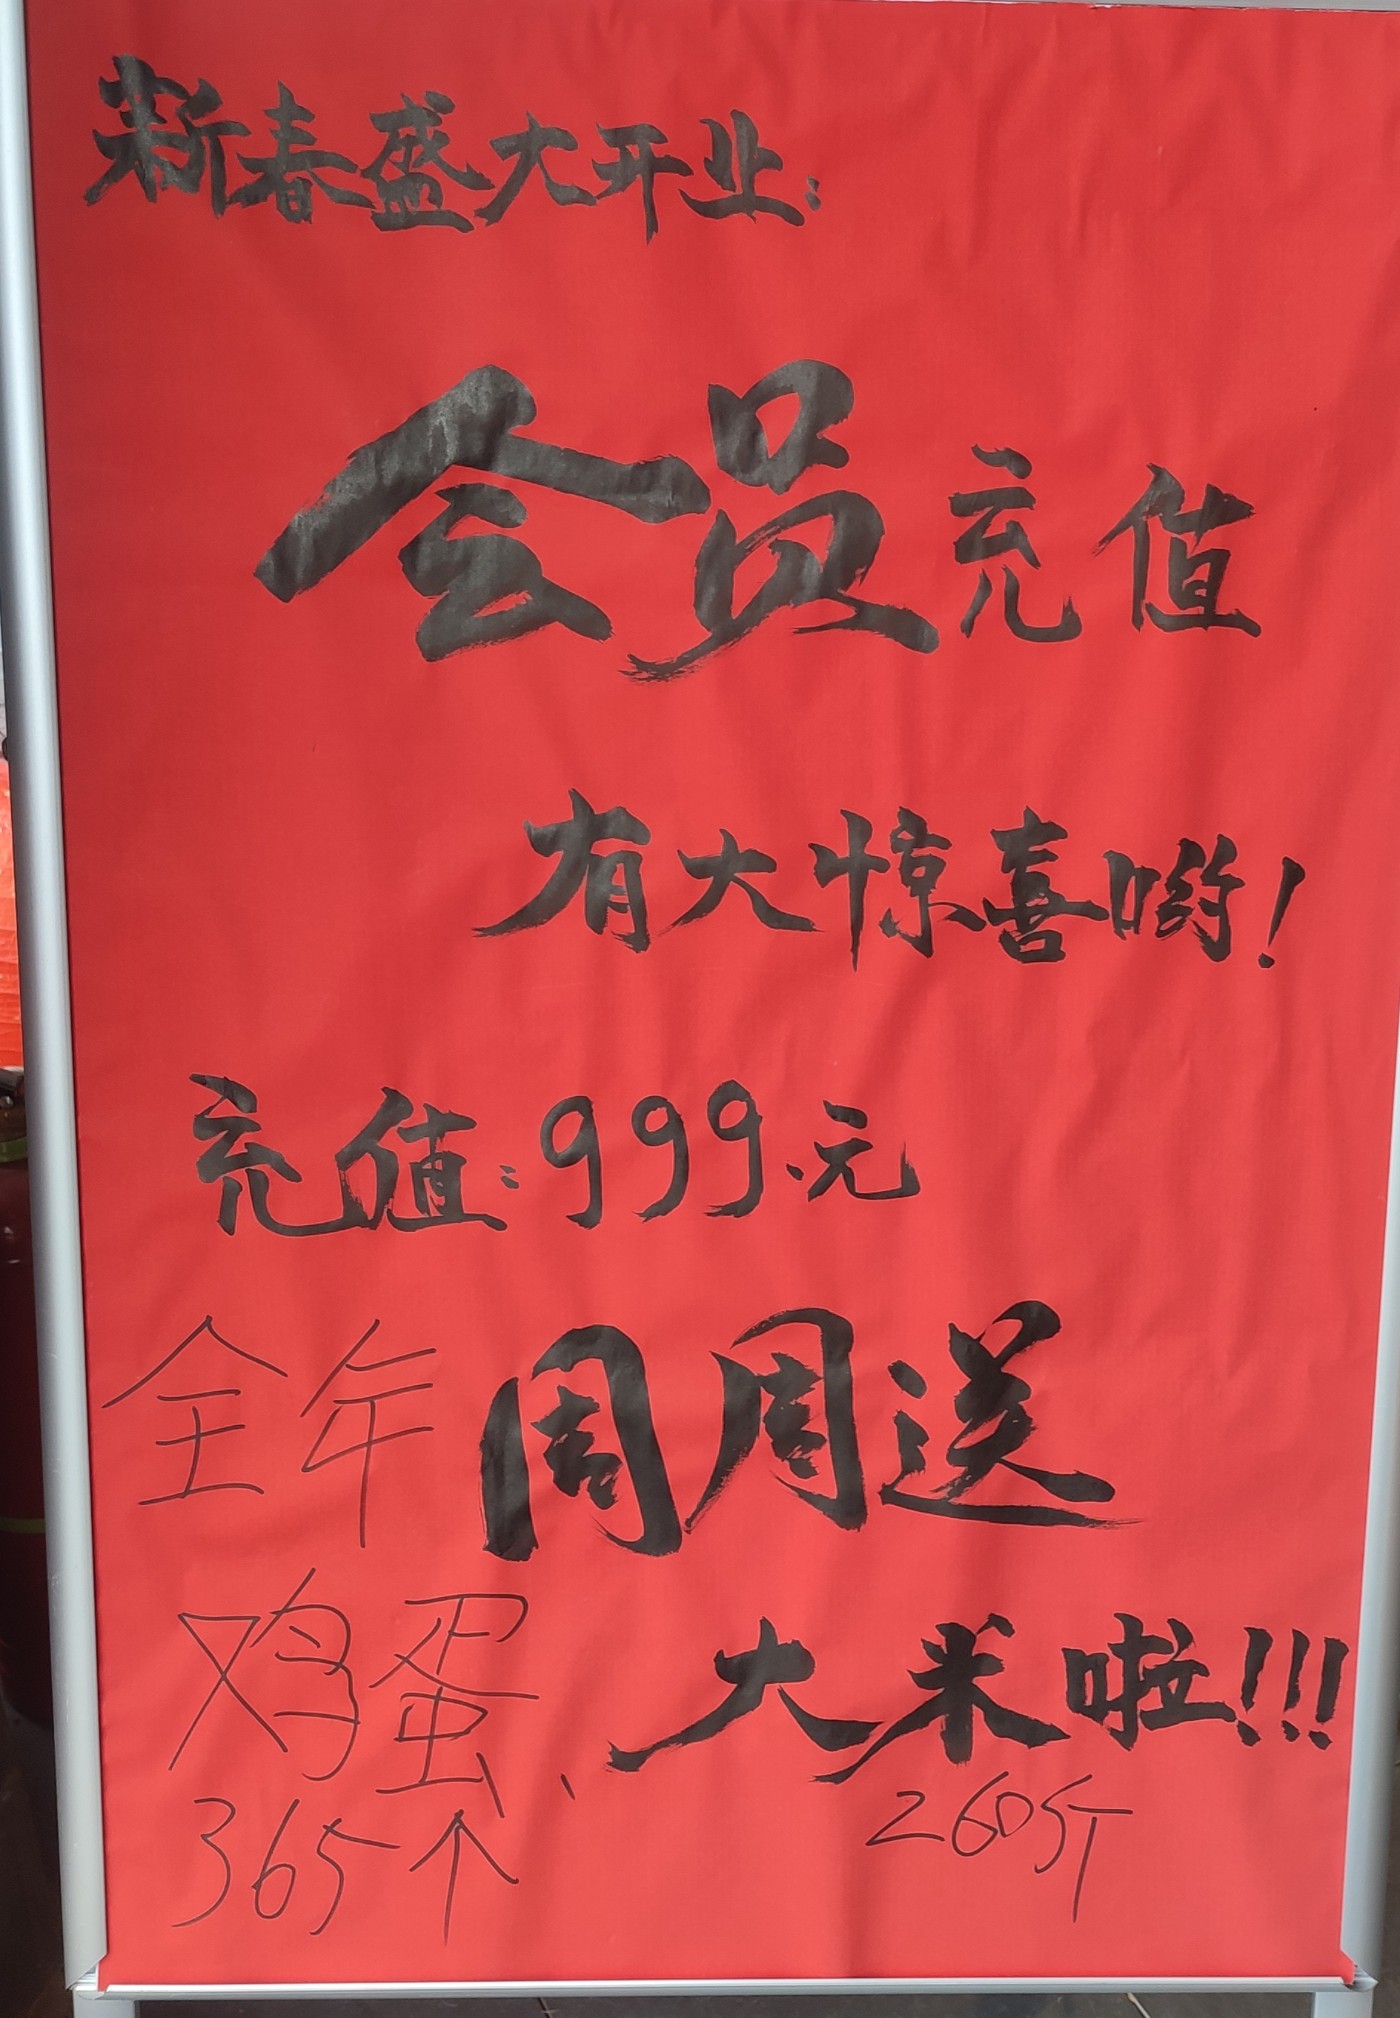 新春盛大开业:
会员充值
有大惊喜哟!
充值:999.元
全年 周周送
鸡蛋、大米啦!!!
365个 260斤